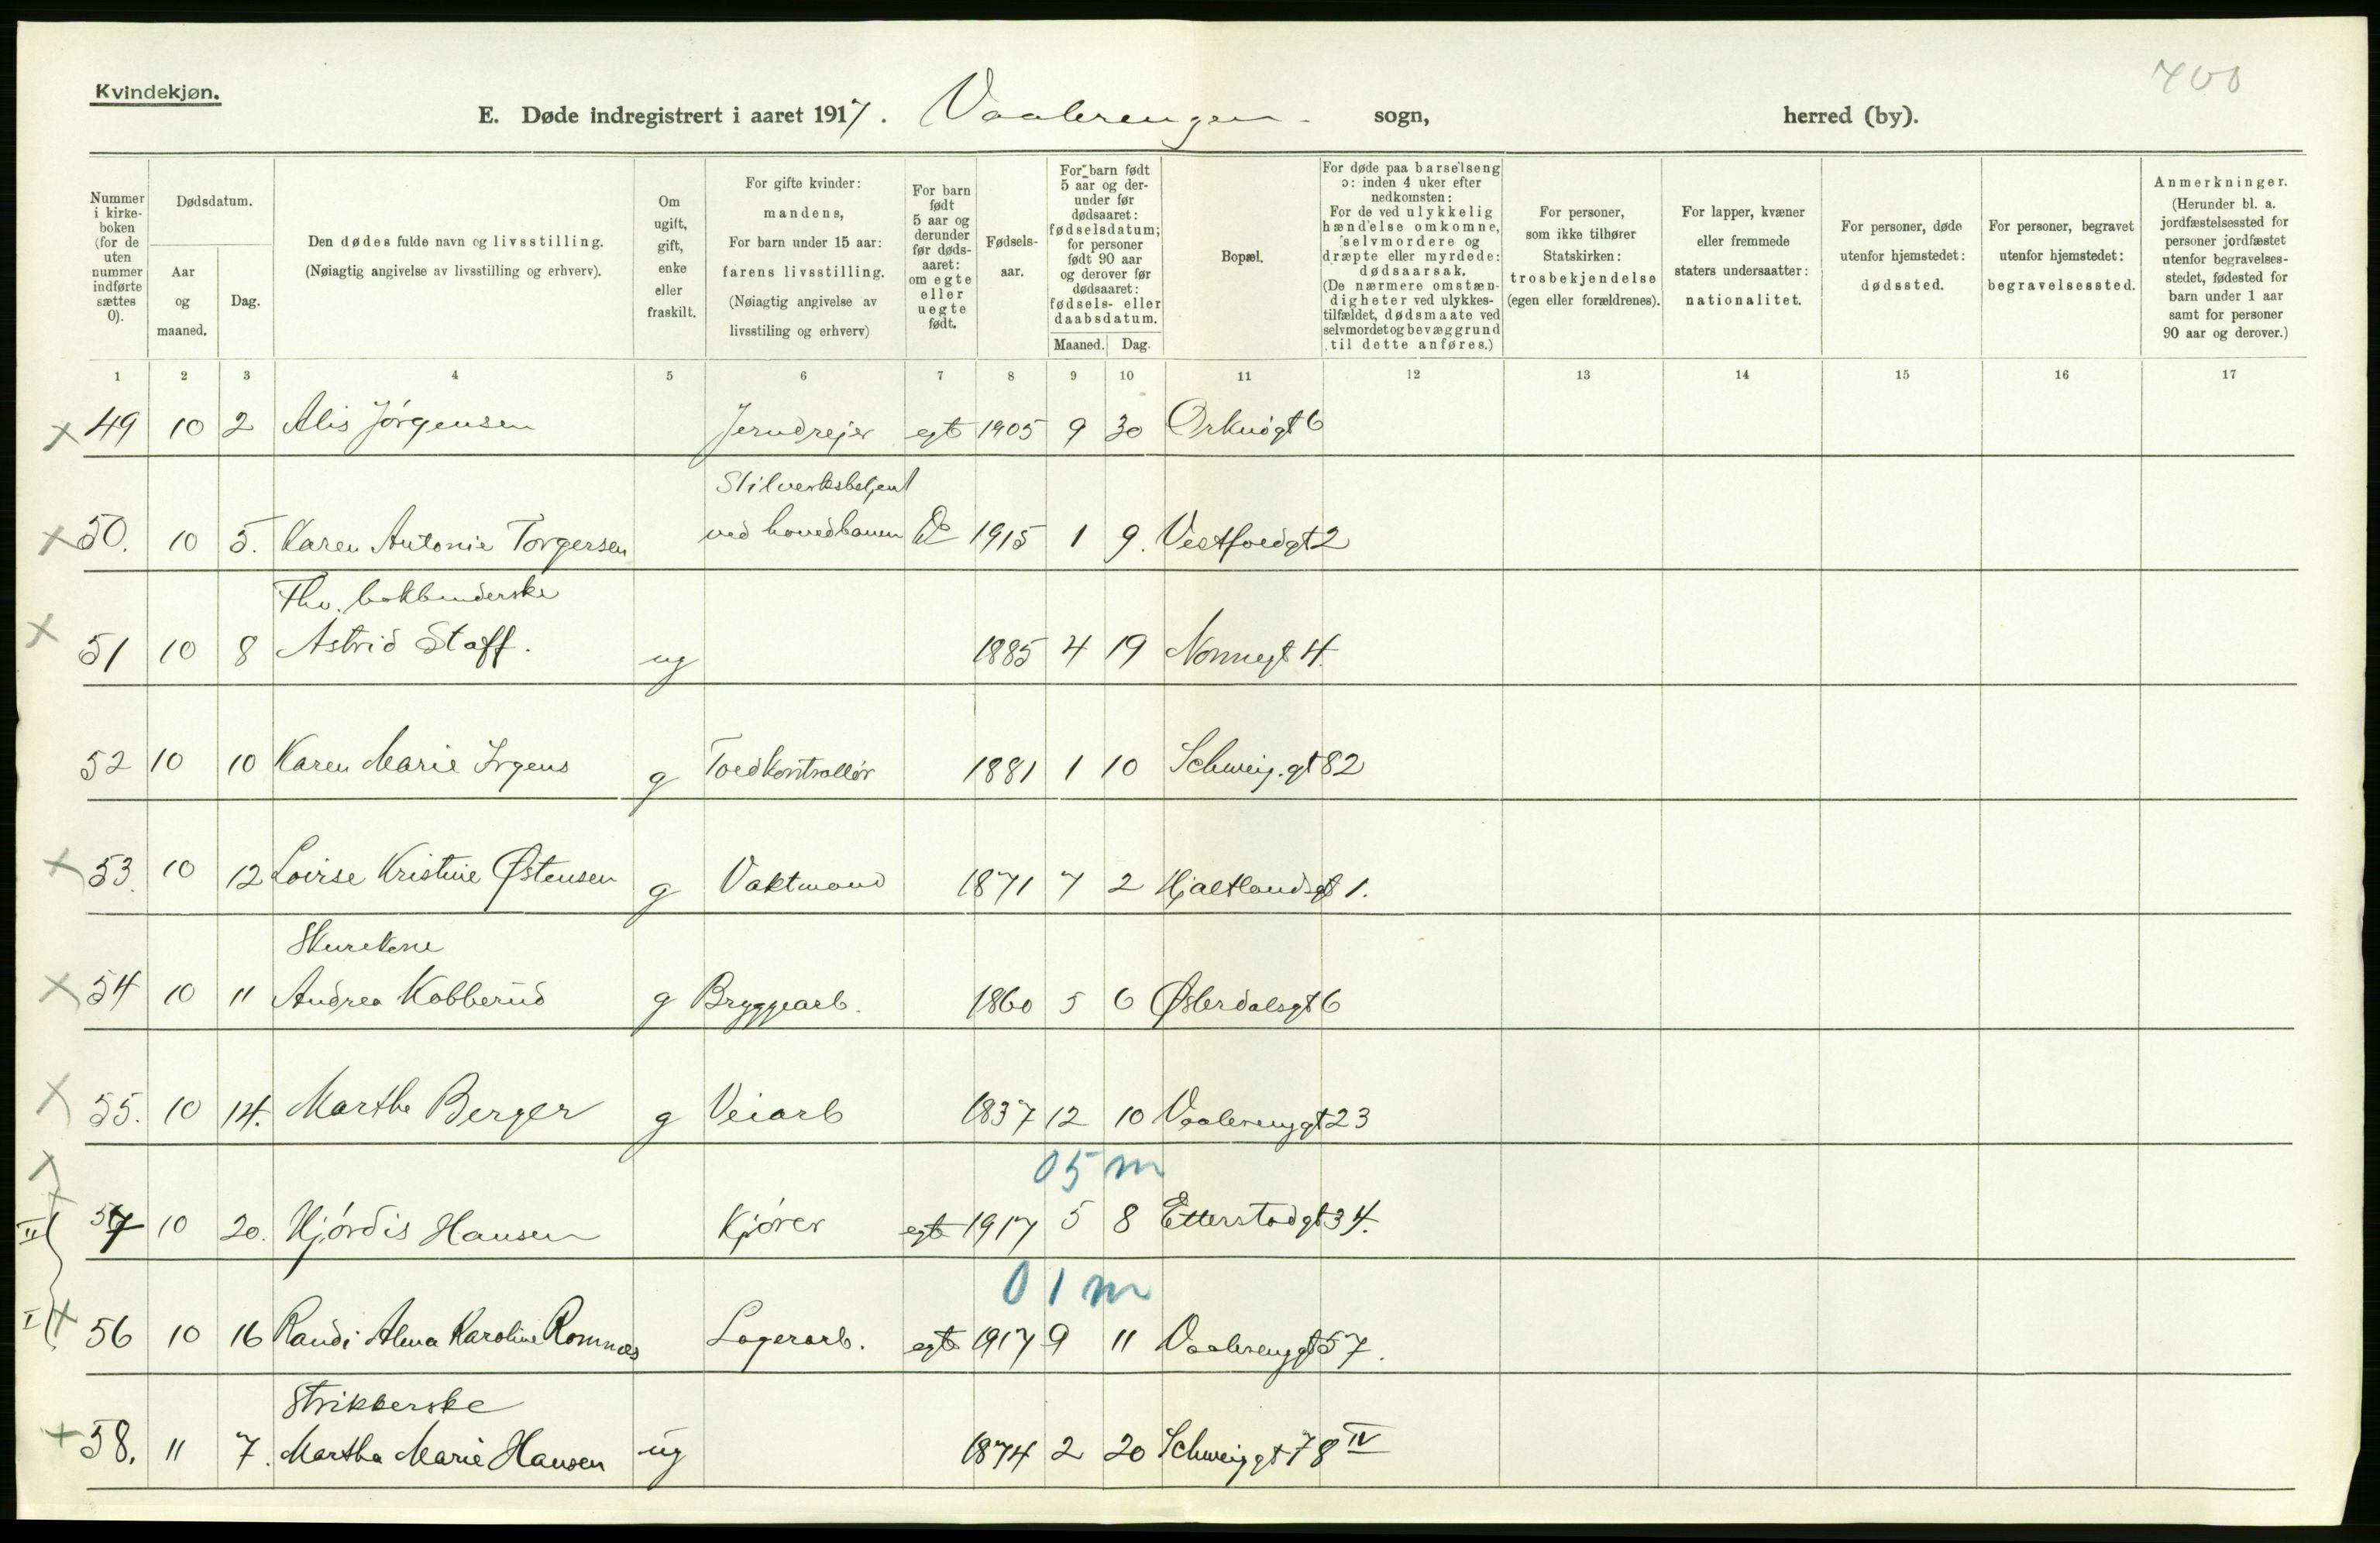 Kvindekjøn.
700
E. Døde indregistrert i aaret 1917. Vaalerengen sogn, herred (by).
Nummer i kirkeboken (for de uten nummer indførte sættes 0).
Dødsdatum.
Aar og maaned.
Dag.
Den dødes fulde navn og livsstilling.
(Nøiagtig angivelse av livsstilling og erhverv).
Om ugift, gift, enke eller fraskilt.
For gifte kvinder: mandens,
For barn under 15 aar: farens livsstilling.
(Nøiagtig angivelse av livsstiling og erhverv)
For barn født 5 aar og derunder før dødsaaret: om egte eller uegte født.
Fødselsaar.
For barn født 5 aar og derunder før dødsaaret: fødselsdatum; for personer født 90 aar og derover før dødsaaret: fødsels- eller daabsdatum.
Maaned. Dag.
Bopæl.
For døde paa barselseng ɔ: inden 4 uker efter nedkomsten:
For de ved ulykkelig hændelse omkomne, selvmordere og dræpte eller myrdede: dødsaarsak.
(De nærmere omstændigheter ved ulykkestilfældet, dødsmaate ved selvmordet og bevæggrund til dette anføres.)
For personer, som ikke tilhører Statskirken: trosbekjendelse (egen eller forældrenes).
For lapper, kvæner eller fremmede staters undersaatter: nationalitet.
For personer, døde utenfor hjemstedet: dødssted.
For personer, begravet utenfor hjemstedet: begravelsessted.
Anmerkninger.
(Herunder bl. a. jordfæstelsessted for personer jordfæstet utenfor begravelsesstedet, fødested for barn under 1 aar samt for personer 90 aar og derover.)
1 2 3 4 5 6 7 8 9 10 11 12 13 14 15 16 17
x 49 10 2 Alis Jörgensen Jerndrejer egte 1905 9 30 Orknögt 6
Stilverksbetjent
x 50. 10 5. Karen Antonie Torgersen ved hovedbanen Do 1915 1 9. Vestfoldgt 2
Fhv. bokbinderske
x 51 10 8 Astrid Staff. ug 1885 4 19 Nonnegt 4.
52 10 10 Karen Marie Irgens g Toldkontrollör 1881 1 10 Schweig.gt 82
x 53. 10 12 Lovise Kristine Østensen g Vaktmand 1871 7 2 Hjaltlandsgt 1.
Skurekone
x 54 10 11 Andrea Kobberud g Bryggearb. 1860 5 6 Østerdalsgt 6
x 55. 10 14. Marthe Berger g Veiarb 1837 12 10 Vaalerenggt 23
05 m
x II 57 10 20. Hjördis Hansen Kjörer egte 1917 5 8 Etterstadgt 34.
01 m
I x 56 10 16 Randi Alma Karoline Romnæs Lagerarb. egte 1917 9 11 Vaalerenggt 57.
Strikkerske
x 58. 11 7. Martha Marie Hansen ug 1874 2 20 Schweiggt 78 IV